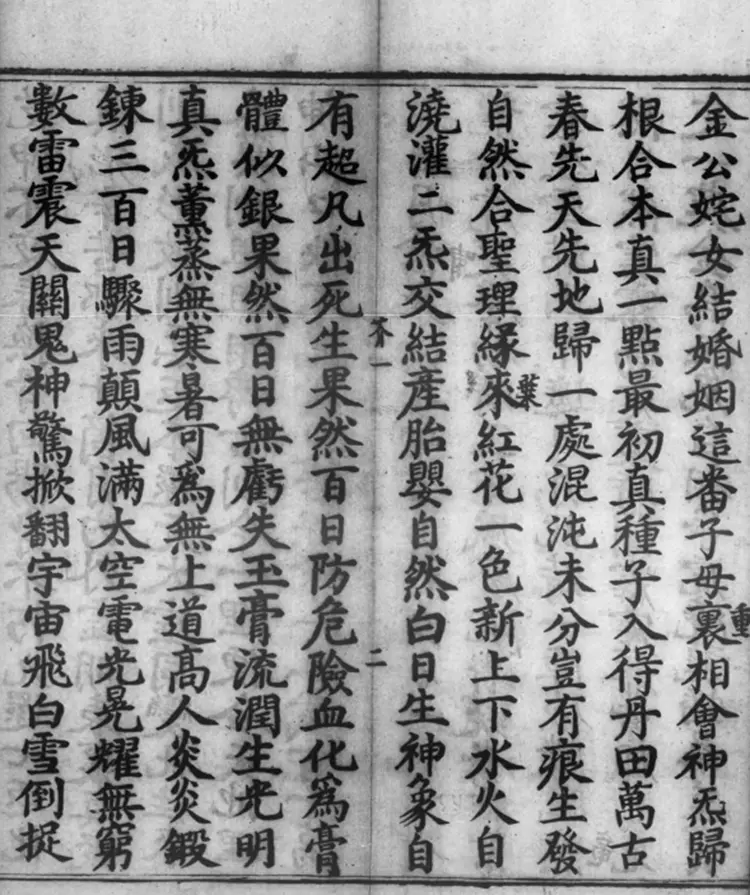 金公姹女結婚姻這番子母裏相會神炁歸
重
根合本真一點最初真種子入得丹田萬古
春先天先地歸一處混沌未分豈有痕生發
自然合聖理緣來紅花一色新上下水火自
葉
澆灌二炁交結産胎嬰自然白日生神象自
一
二
有超凡出死生果然百日防危險血化爲膏
體似銀果然百日無虧失玉膏流潤生光明
真炁薰蒸無寒暑可爲無上道高人炎炎鍛
鍊三百日驟雨顛風滿太空電光晃耀無窮
數雷震天關鬼神驚掀翻宇宙飛白雪倒捉